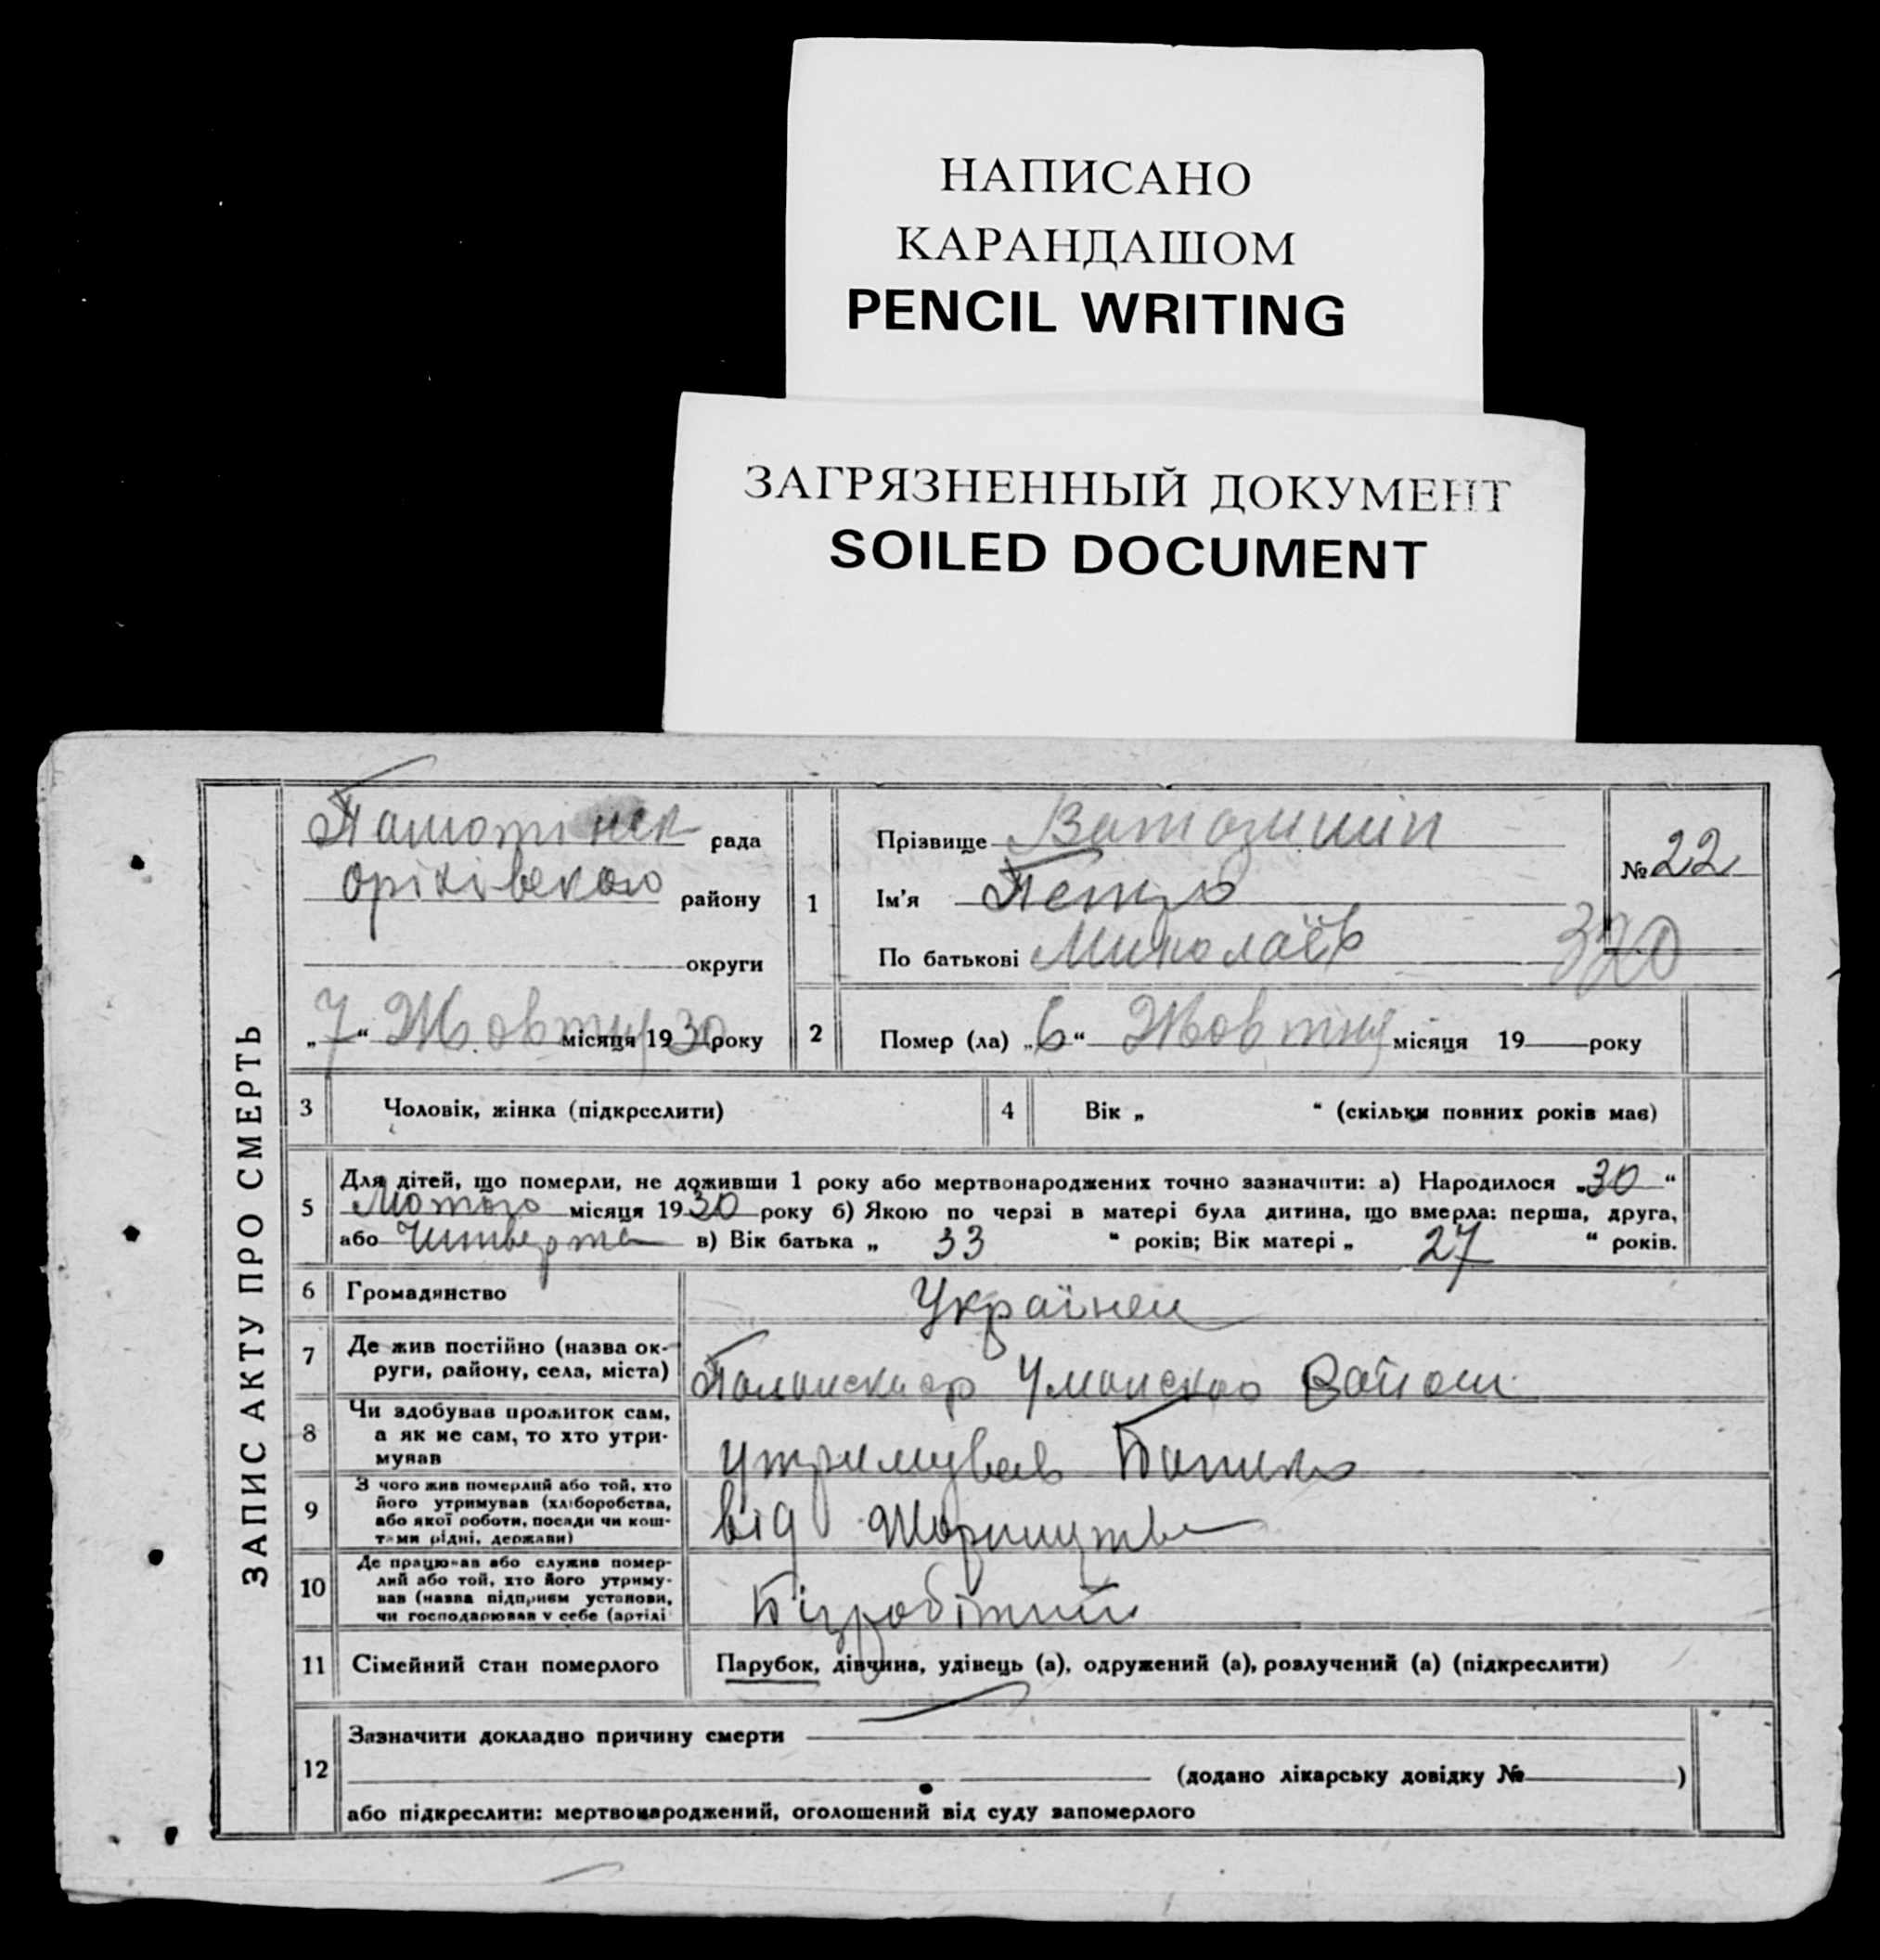 НАПИСАНО
КАРАНДАШОМ
PENCIL WRITING
ЗАГРЯЗНЕННЫЙ ДОКУМЕНТ
SOILED DOCUMENT
ЗАПИС АКТУ ПРО СМЕРТЬ
рада
Оріхівського району
округи
„7“ Жовтня місяця 1930 року
1
Прізвище
Ім'я Петро
По батькові Миколаїв
№ 22
320
2 Помер (ла) „6“ Жовтня місяця 19 року
3 Чоловік, жінка (підкреслити)
4 Вік „ “ (скільки повних років мав)
5 Для дітей, що померли, не доживши 1 року або мертвонароджених точно зазначити: а) Народилося „30“
Лютого місяця 1930 року б) Якою по черзі в матері була дитина, що вмерла: перша, друга,
або Читверта в) Вік батька „ 33 “ років; Вік матері „ 27 “ років.
6 Громадянство Українец
7 Де жив постійно (назва ок-
руги, району, села, міста) Уманского
8 Чи здобував прожиток сам,
а як не сам, то хто утри-
мував утримував Батько
9 З чого жив померлий або той, хто
його утримував (хліборобства,
або якої роботи, посади чи кош-
тами рідні, держави) від
10 Де працював або служив помер-
лий або той, хто його утриму-
вав (назва підприєм установи,
чи господарював у себе (артілі Бізробітний
11 Сімейний стан померлого Парубок, дівчина, удівець (а), одружений (а), розлучений (а) (підкреслити)
12 Зазначити докладно причину смерти
(додано лікарську довідку № )
або підкреслити: мертвонароджений, оголошений від суду запомерлого